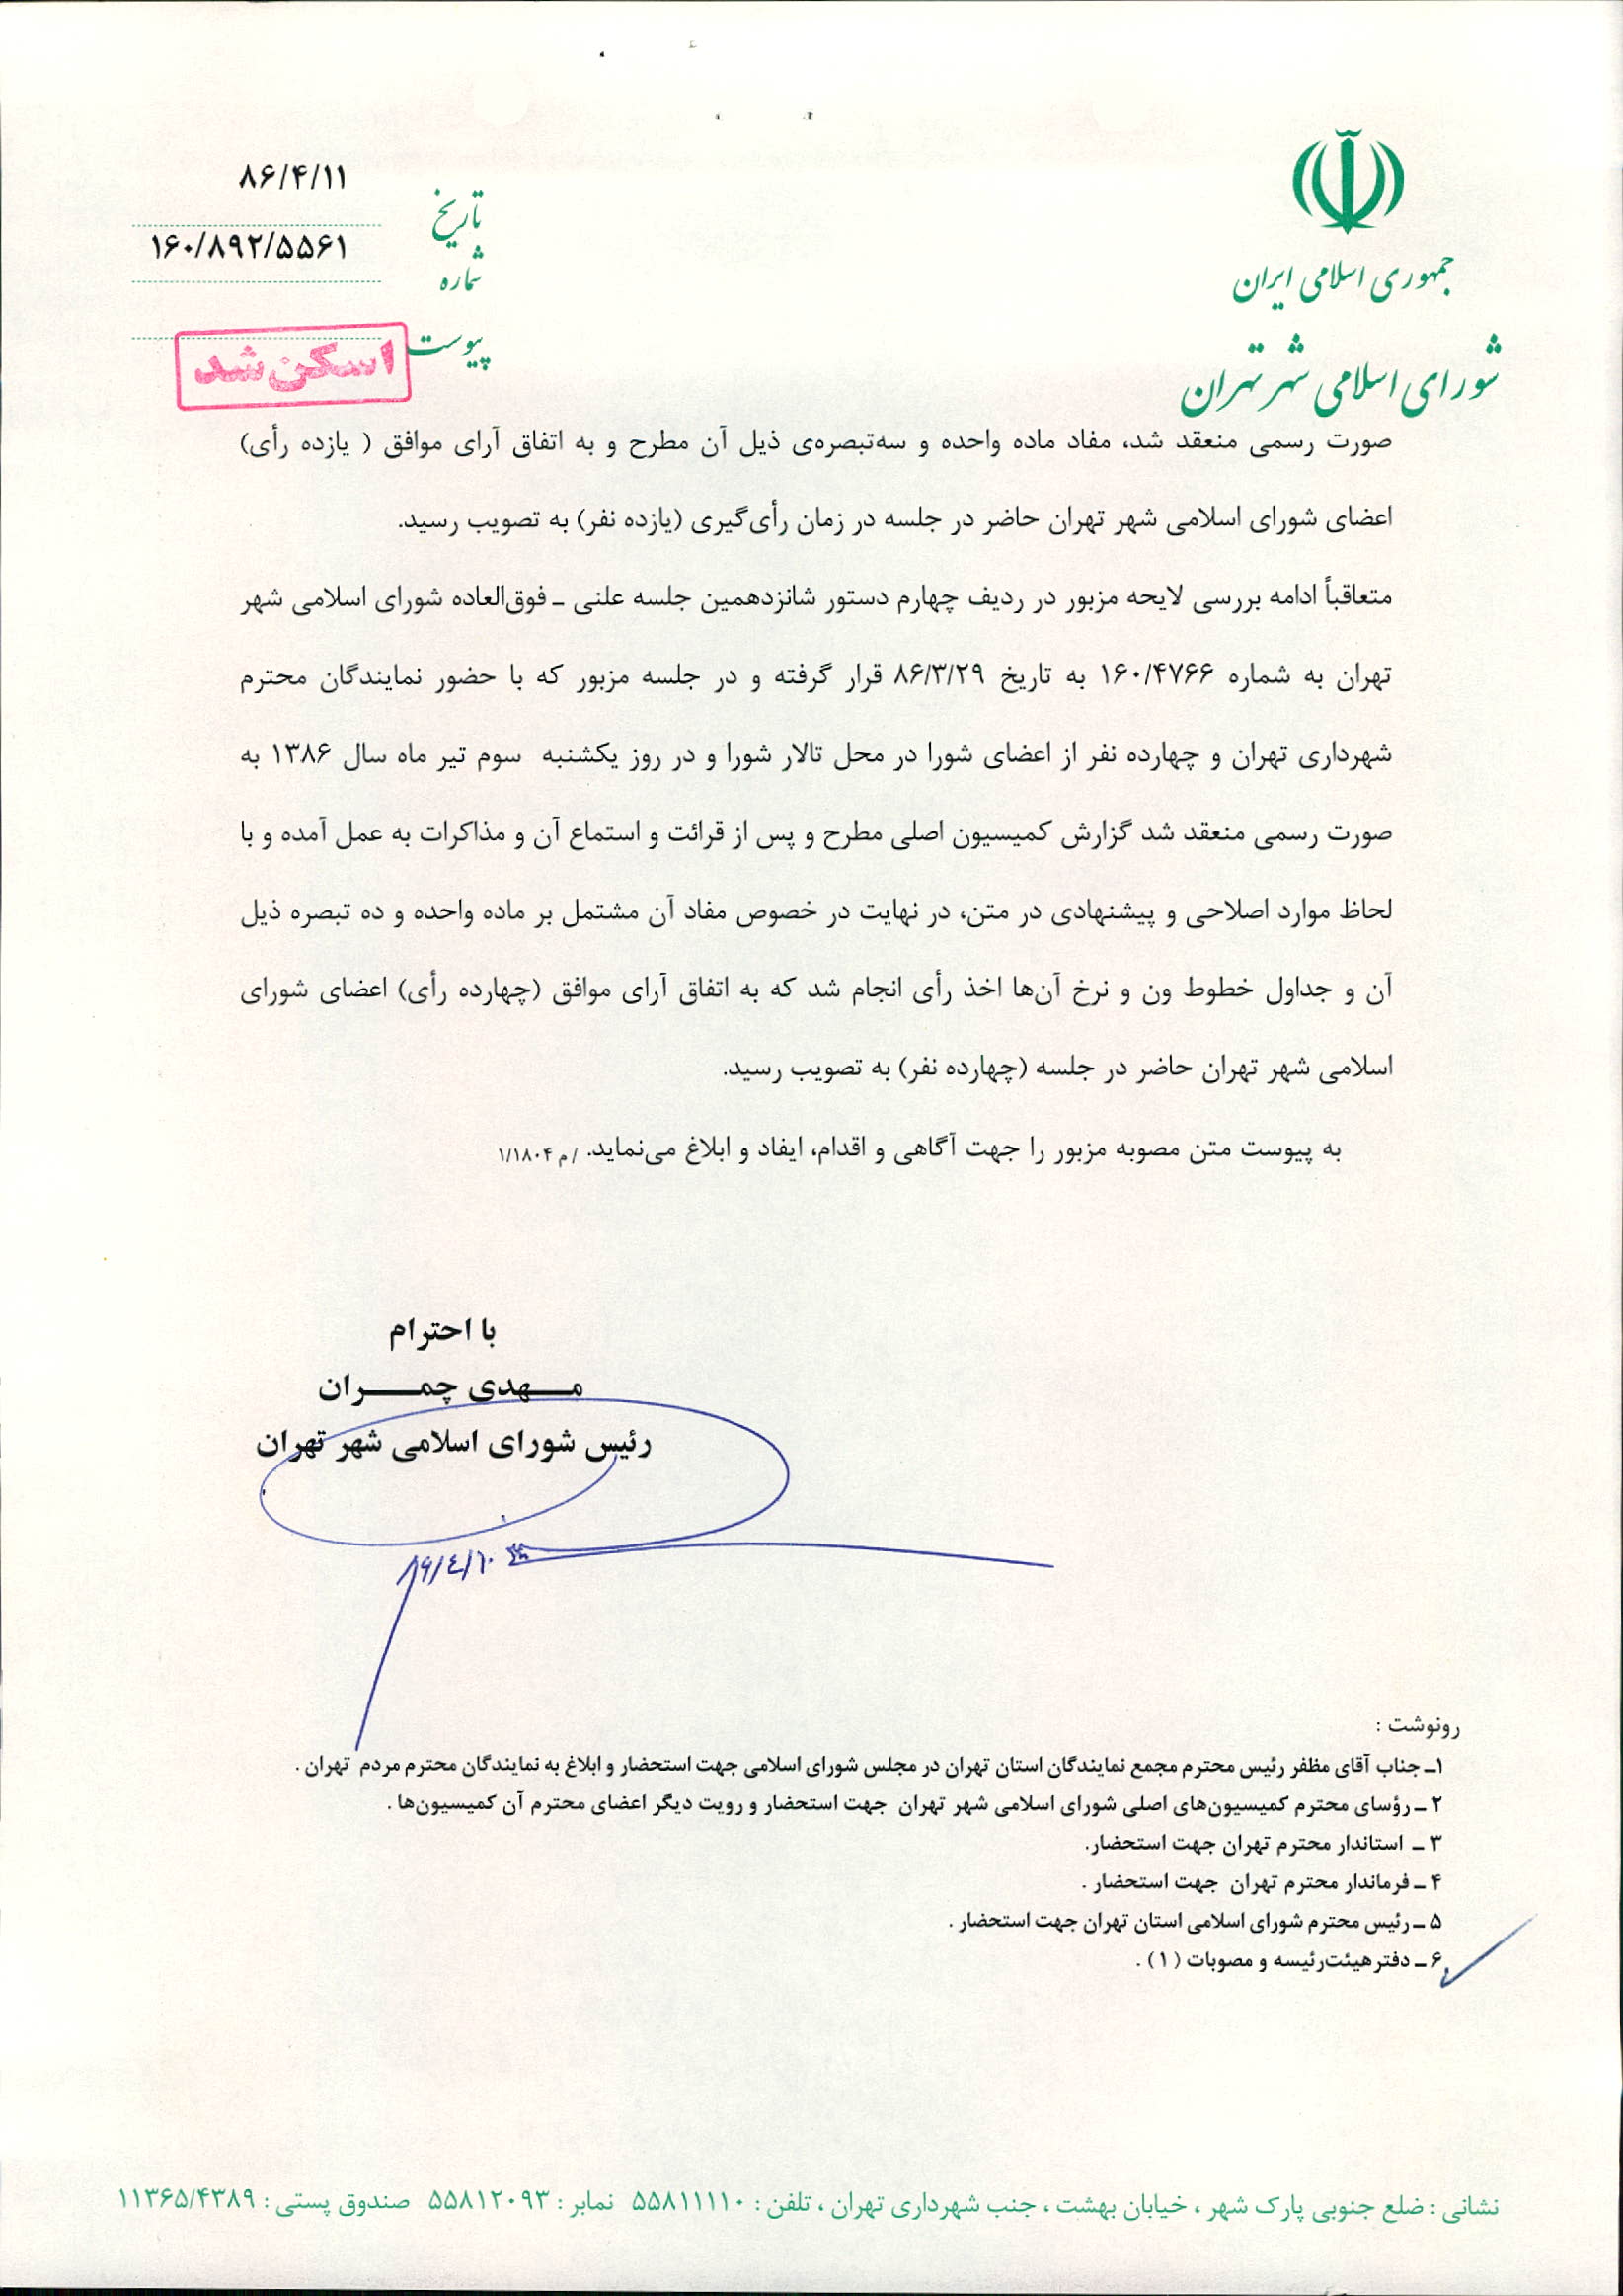 جمهوری اسلامی ایران
شورای اسلامی شهر تهران
تاریخ ۸۶/۴/۱۱
شماره ۱۶۰/۸۹۲/۵۵۶۱
پیوست
اسکن شد
صورت رسمی منعقد شد، مفاد ماده واحده و سه‌تبصره‌ی ذیل آن مطرح و به اتفاق آرای موافق ( یازده رأی)
اعضای شورای اسلامی شهر تهران حاضر در جلسه در زمان رأی‌گیری (یازده نفر) به تصویب رسید.
متعاقباً ادامه بررسی لایحه مزبور در ردیف چهارم دستور شانزدهمین جلسه علنی ـ فوق‌العاده شورای اسلامی شهر
تهران به شماره ۱۶۰/۴۷۶۶ به تاریخ ۸۶/۳/۲۹ قرار گرفته و در جلسه مزبور که با حضور نمایندگان محترم
شهرداری تهران و چهارده نفر از اعضای شورا در محل تالار شورا و در روز یکشنبه سوم تیر ماه سال ۱۳۸۶ به
صورت رسمی منعقد شد گزارش کمیسیون اصلی مطرح و پس از قرائت و استماع آن و مذاکرات به عمل آمده و با
لحاظ موارد اصلاحی و پیشنهادی در متن، در نهایت در خصوص مفاد آن مشتمل بر ماده واحده و ده تبصره ذیل
آن و جداول خطوط ون و نرخ آن‌ها اخذ رأی انجام شد که به اتفاق آرای موافق (چهارده رأی) اعضای شورای
اسلامی شهر تهران حاضر در جلسه (چهارده نفر) به تصویب رسید.
به پیوست متن مصوبه مزبور را جهت آگاهی و اقدام، ایفاد و ابلاغ می‌نماید. /م ۱/۱۸۰۴
با احترام
مـهدی چمـران
رئیس شورای اسلامی شهر تهران
۸۶/۴/۱۰
رونوشت :
۱ـ جناب آقای مظفر رئیس محترم مجمع نمایندگان استان تهران در مجلس شورای اسلامی جهت استحضار و ابلاغ به نمایندگان محترم مردم تهران .
۲ ـ رؤسای محترم کمیسیون‌های اصلی شورای اسلامی شهر تهران جهت استحضار و رویت دیگر اعضای محترم آن کمیسیون‌ها .
۳ ـ استاندار محترم تهران جهت استحضار.
۴ ـ فرماندار محترم تهران جهت استحضار .
۵ ـ رئیس محترم شورای اسلامی استان تهران جهت استحضار .
۶ ـ دفتر هیئت‌رئیسه و مصوبات ( ۱ ) .
نشانی : ضلع جنوبی پارک شهر ، خیابان بهشت ، جنب شهرداری تهران ، تلفن : ۵۵۸۱۱۱۱۰ نمابر : ۵۵۸۱۲۰۹۳ صندوق پستی : ۱۱۳۶۵/۴۳۸۹